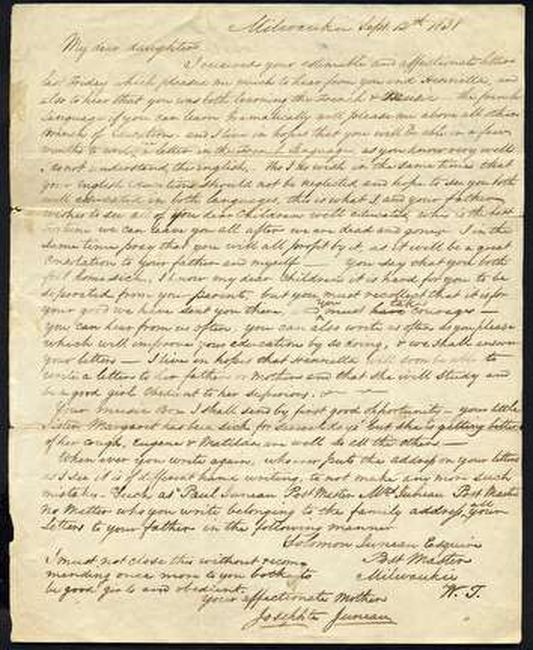 Milwaukee Sept. 12th 1838
My dear daughters
I received your estimable and affectionate letters
last Friday which pleased me much to hear from you and Henrietta, and
also to hear that you was both learning the French & Music the french
language if you can learn Gramatically will please me above all other
branch of Education, and I live in hopes that you will be able in a few
months to write a letter in the French language, as you know very well
I do not understand the english. Tho I do wish in the same times that
your English Educations should not be neglected and hope to see you both
well educated in both languages, this is what I and your father
wishes to see all of you dear Children well educated this is the best
fortune we can leave you all after we are dead and gone. I in the
same times pray that you will all profit by it, as it will be a great
Consolation to your father and myself you say that you both
felt homesick, I know my dear Children it is hard for you to be
seperated from your parents, but you must recollect that it is for
your good we have sent you there, you must take courage —
you can hear from us often, you can also write as often as you please
which will improve your education by so doing, & we shall answer
your letters — I live in hopes that Henrietta will soon be able to
write a letters to her father or Mothers and that she will study and
be a good girl Obedient to her superiors.
Your Music Box I shall send by first good opportunity — your little
Sister Margaret has been sick for several days but she is getting better
of her cough, Eugene & Matilda are well so all the others —
When ever you write again, whoever puts the address on your letters
as I see it is of different hand writing, to not make any more such
mistake — Such as Paul Juneau Post Master Mrs Juneau Post Master
No Matter who you write belonging to the family address all your
Letters to your father in the following manner
Solomon Juneau Esquire
Post Master
Milwaukie
W. T.
I must not close this without recom
mending once more to you both to
be good girls and obedient.
Your affectionate Mother
Josephte Juneau